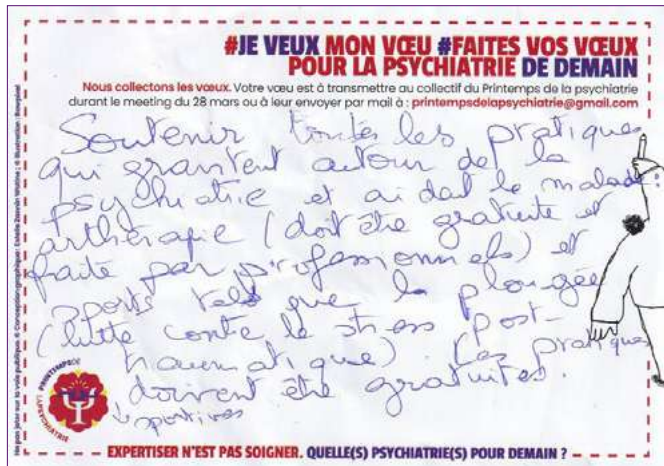 #JE VEUX MON VŒU #FAITES VOS VŒUX
POUR LA PSYCHIATRIE DE DEMAIN
Nous collectons les vœux. Votre vœu est à transmettre au collectif du Printemps de la psychiatrie
durant le meeting du 28 mars ou à leur envoyer par mail à : printempsdelapsychiatrie@gmail.com
Soutenir toutes les pratiques
qui gravitent autour de la
psychiatrie et aidant le malade :
arthérapie (doit être gratuite et
faite par professionnels) et
sports tels que la plongée
(lutte contre le stress post-
traumatique). Les pratiques
doivent être gratuites.
↳ sportives
PRINTEMPS DE
LA PSYCHIATRIE
EXPERTISER N'EST PAS SOIGNER. QUELLE(S) PSYCHIATRIE(S) POUR DEMAIN ?
Ne pas jeter sur la voie publique. © Conception graphique : Estelle